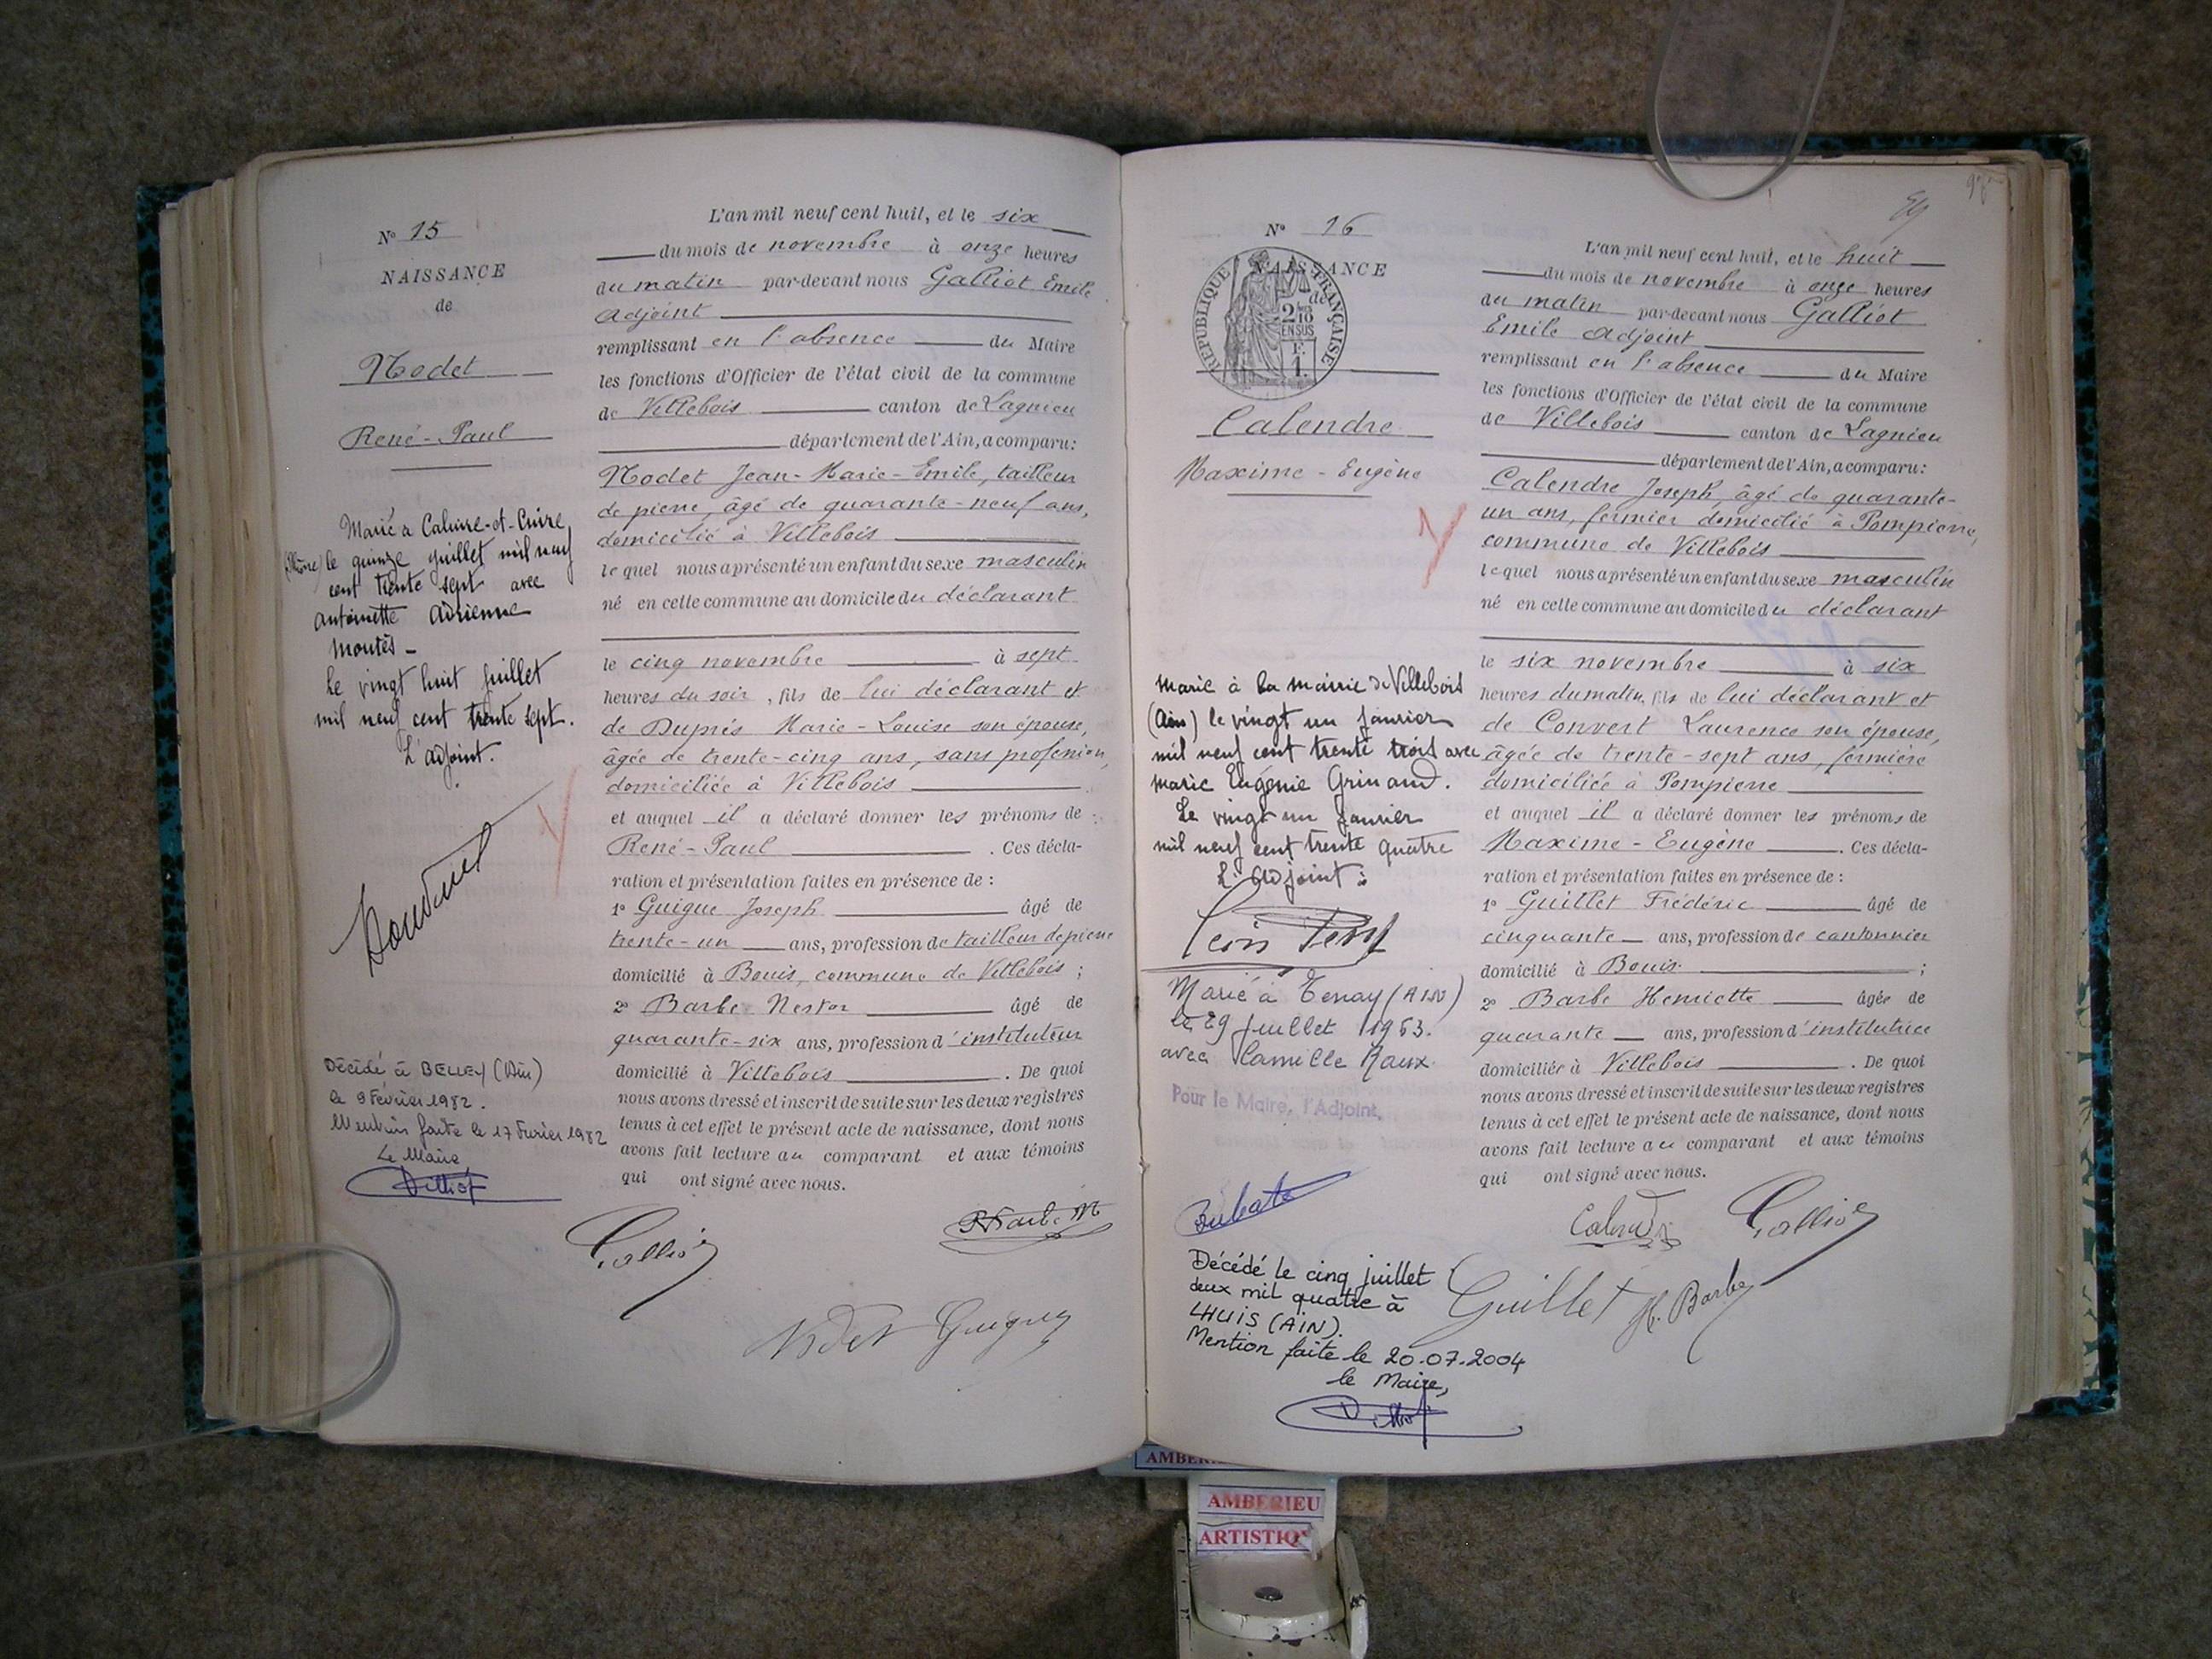 N° 15
NAISSANCE
de
Nodet
René-Paul
Marié à Caluire-et-Cuire
(Rhône) le quinze juillet mil neuf
cent trente sept avec
antoinette Adrienne
Montès -
Le vingt huit juillet
mil neuf cent trente sept.
L'adjoint.
Décédé à BELLEY (Ain)
le 9 Février 1982.
Mention faite le 17 Février 1982
Le Maire
L'an mil neuf cent huit, et le six
du mois de novembre à onze heures
du matin par-devant nous Galliot Emile
adjoint
remplissant en l'absence du Maire
les fonctions d'Officier de l'état civil de la commune
de Villebois canton de Lagnieu
département de l'Ain, a comparu:
Nodet Jean-Marie-Emile, tailleur
de pierre, âgé de quarante-neuf ans,
domicilié à Villebois
lequel nous a présenté un enfant du sexe masculin
né en cette commune au domicile du déclarant
le cinq novembre à sept
heures du soir, fils de lui déclarant et
de Duprés Marie-Louise son épouse,
âgée de trente-cinq ans, sans profession,
domiciliée à Villebois
et auquel il a déclaré donner les prénoms de
René-Paul . Ces décla-
ration et présentation faites en présence de :
1° Guigue Joseph âgé de
trente-un ans, profession de tailleur de pierre
domicilié à Bouis, commune de Villebois ;
2° Barbe Nestor âgé de
quarante-six ans, profession d'instituteur
domicilié à Villebois . De quoi
nous avons dressé et inscrit de suite sur les deux registres
tenus à cet effet le présent acte de naissance, dont nous
avons fait lecture au comparant et aux témoins
qui ont signé avec nous.
Galliot
Nodet Guigue
N° 16
NAISSANCE
de
REPUBLIQUE FRANÇAISE
2/10
EN SUS
F.
1.
Calendre
Maxime - Eugène
Marié à la mairie de Villebois
(Ain) le vingt un janvier
mil neuf cent trente trois avec
Marie Eugénie Grinand.
Le vingt un janvier
mil neuf cent trente quatre
L'adjoint :
Marié à Tenay (AIN)
le 29 juillet 1963.
avec Camille Raux
Pour le Maire, l'Adjoint,
Décédé le cinq juillet
deux mil quatre à
LHUIS (AIN).
Mention faite le 20.07.2004
le Maire,
L'an mil neuf cent huit, et le huit
du mois de novembre à onze heures
du matin par-devant nous Galliot
Emile adjoint
remplissant en l'absence du Maire
les fonctions d'Officier de l'état civil de la commune
de Villebois canton de Lagnieu
département de l'Ain, a comparu:
Calendre Joseph, âgé de quarante-
un ans, fermier domicilié à Pompierre,
commune de Villebois
lequel nous a présenté un enfant du sexe masculin
né en cette commune au domicile du déclarant
le six novembre à six
heures du matin, fils de lui déclarant et
de Convert Laurence son épouse,
âgée de trente-sept ans, fermière
domiciliée à Pompierre
et auquel il a déclaré donner les prénoms de
Maxime - Eugène . Ces décla-
ration et présentation faites en présence de :
1° Guillet Frédéric âgé de
cinquante ans, profession de cantonnier
domicilié à Bouis ;
2° Barbe Henriette âgée de
quarante ans, profession d'institutrice
domiciliée à Villebois . De quoi
nous avons dressé et inscrit de suite sur les deux registres
tenus à cet effet le présent acte de naissance, dont nous
avons fait lecture au comparant et aux témoins
qui ont signé avec nous.
Galliot
Guillet H. Barbe
AMBERIEU
ARTISTIQ